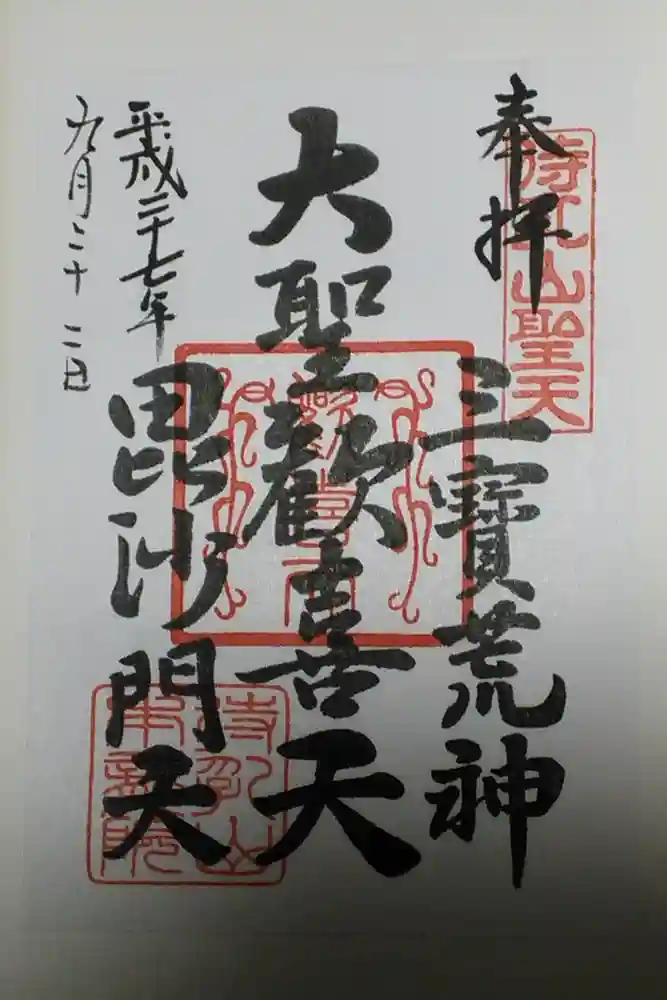 奉拝
待乳山聖天
三寶荒神
大聖歡喜天
毘沙門天
平成二十七年
九月二十二日
待乳山
本龍院